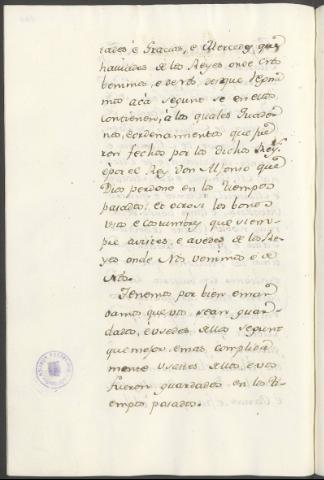 tades, è Gracias, e Mercedes que
haviedes de los Reyes onde Nos
benimos, e de Nos, des que Regna-
mos acá segunt se en ellos
contienen, à los quales Quader-
nos, è ordenamientos que fue
ron fechos por los dichos Reyes
è por el Rey Don Alfonso que
Dios perdone en los tiempos
pasados: et otrosi los bonos
usos e costumbres que siem-
pre avistes, e avedes de los Re-
yes onde Nos venimos e de
Nos.
Tenemos por bien e man-
damos que vos sean guar-
dados, e usedes dellos segunt
que mejor, e mas complida-
mente usastes dellos, e vos
fueron guardados en los ti-
empos pasados.